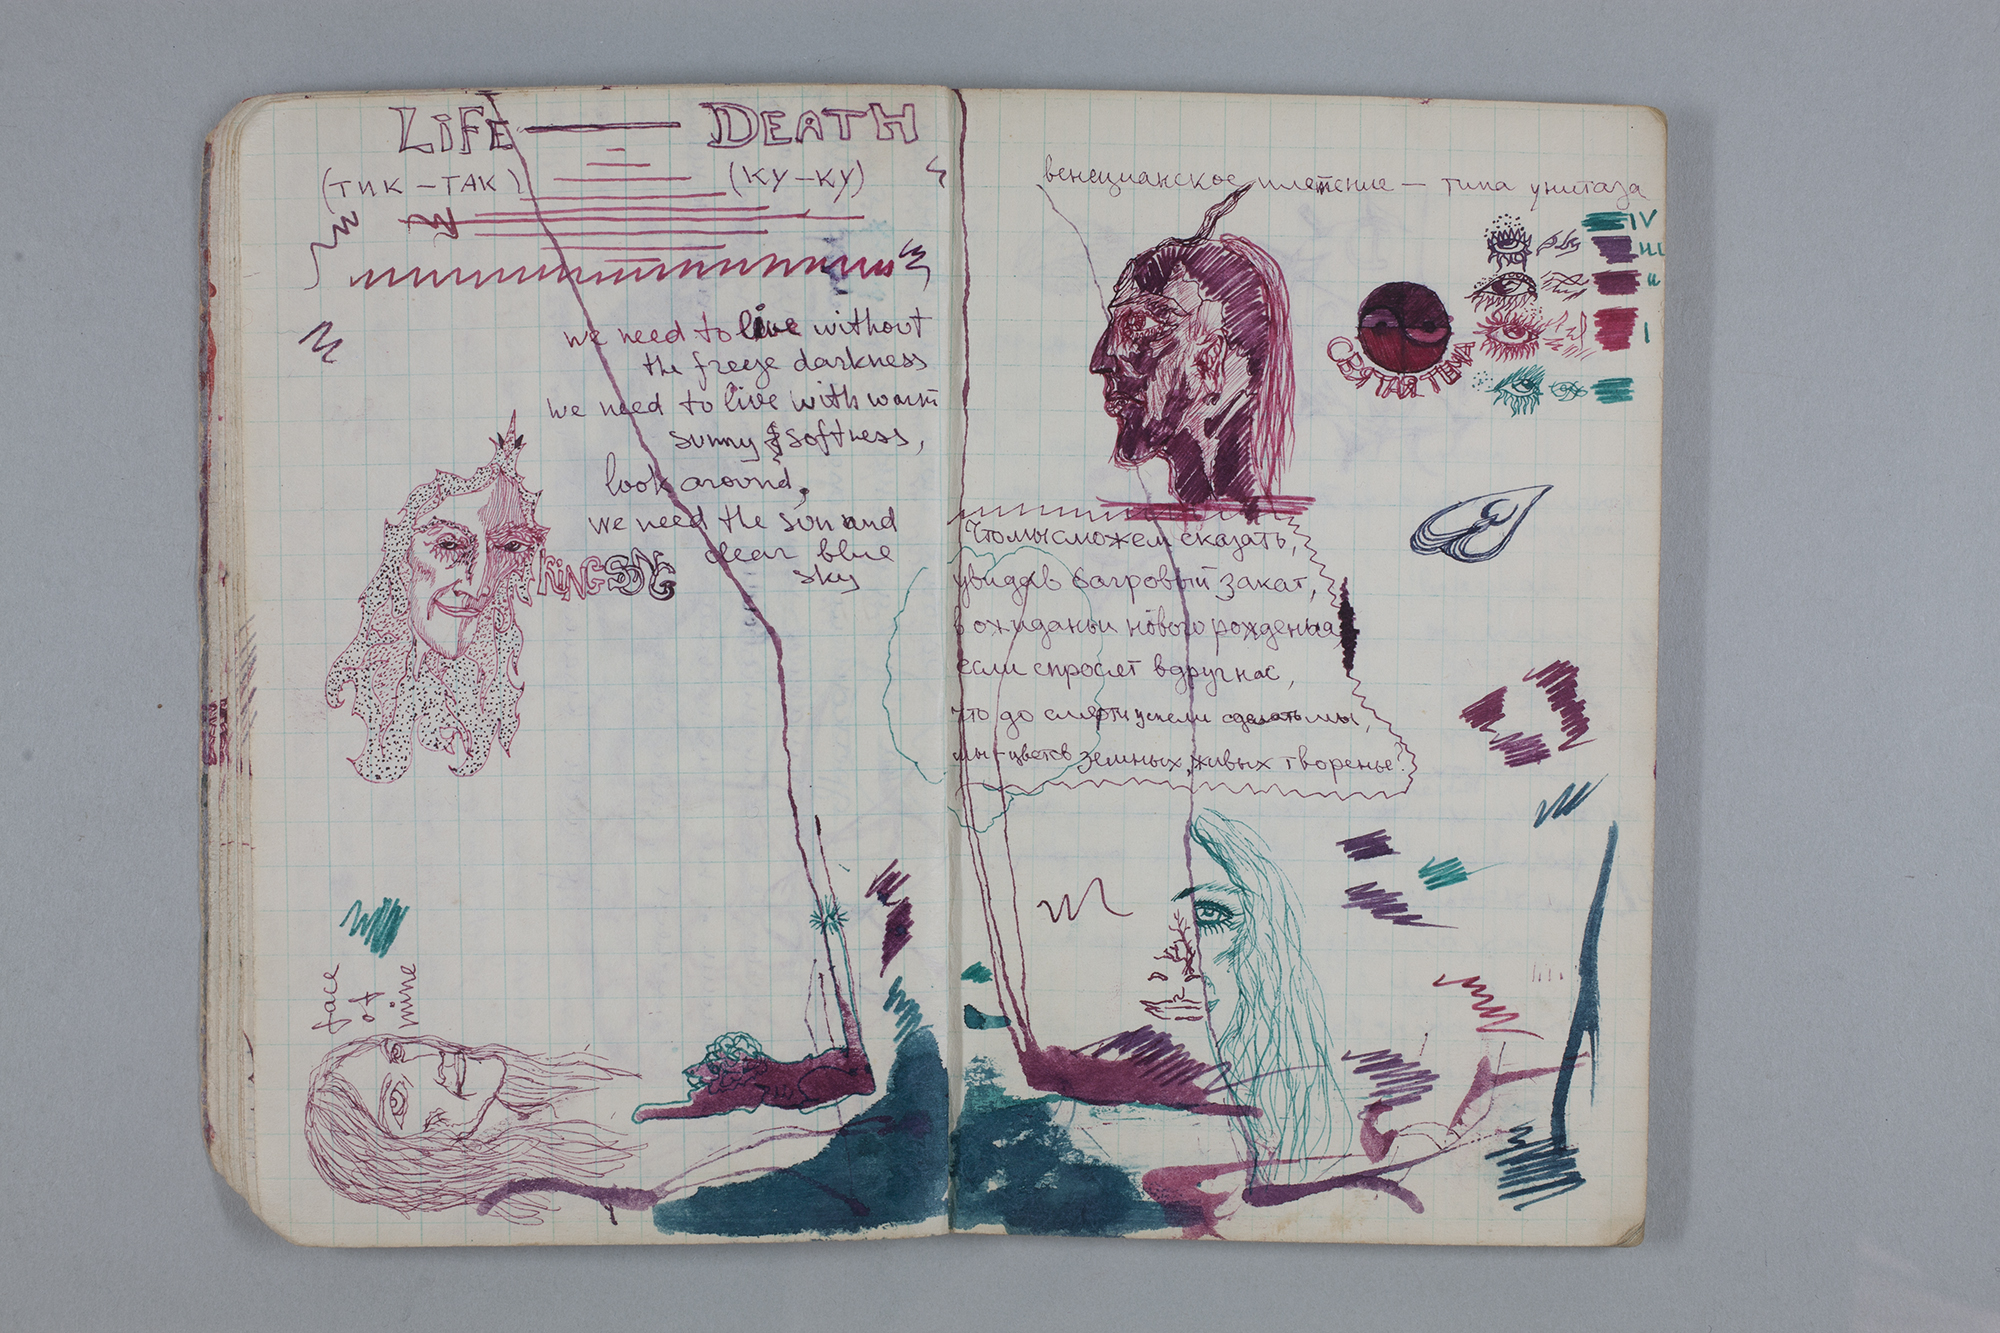 LiFE — DEATH
(ТИК – ТАК) (КУ – КУ)
we need to live without
the freeze darkness
we need to live with warm
sunny & softness,
look around,
we need the sun and
clear blue
sky
KING SONG
face
of
mine
венецианское плетение — типа унитаза
IV
III
II
I
СВЯТАЯ ТЕМА
Что мы сможем сказать,
увидев багровый закат,
в ожиданьи нового рожденья
если спросят вдруг нас,
что до смерти успели сделать мы,
мы – цветов земных, живых творенье?